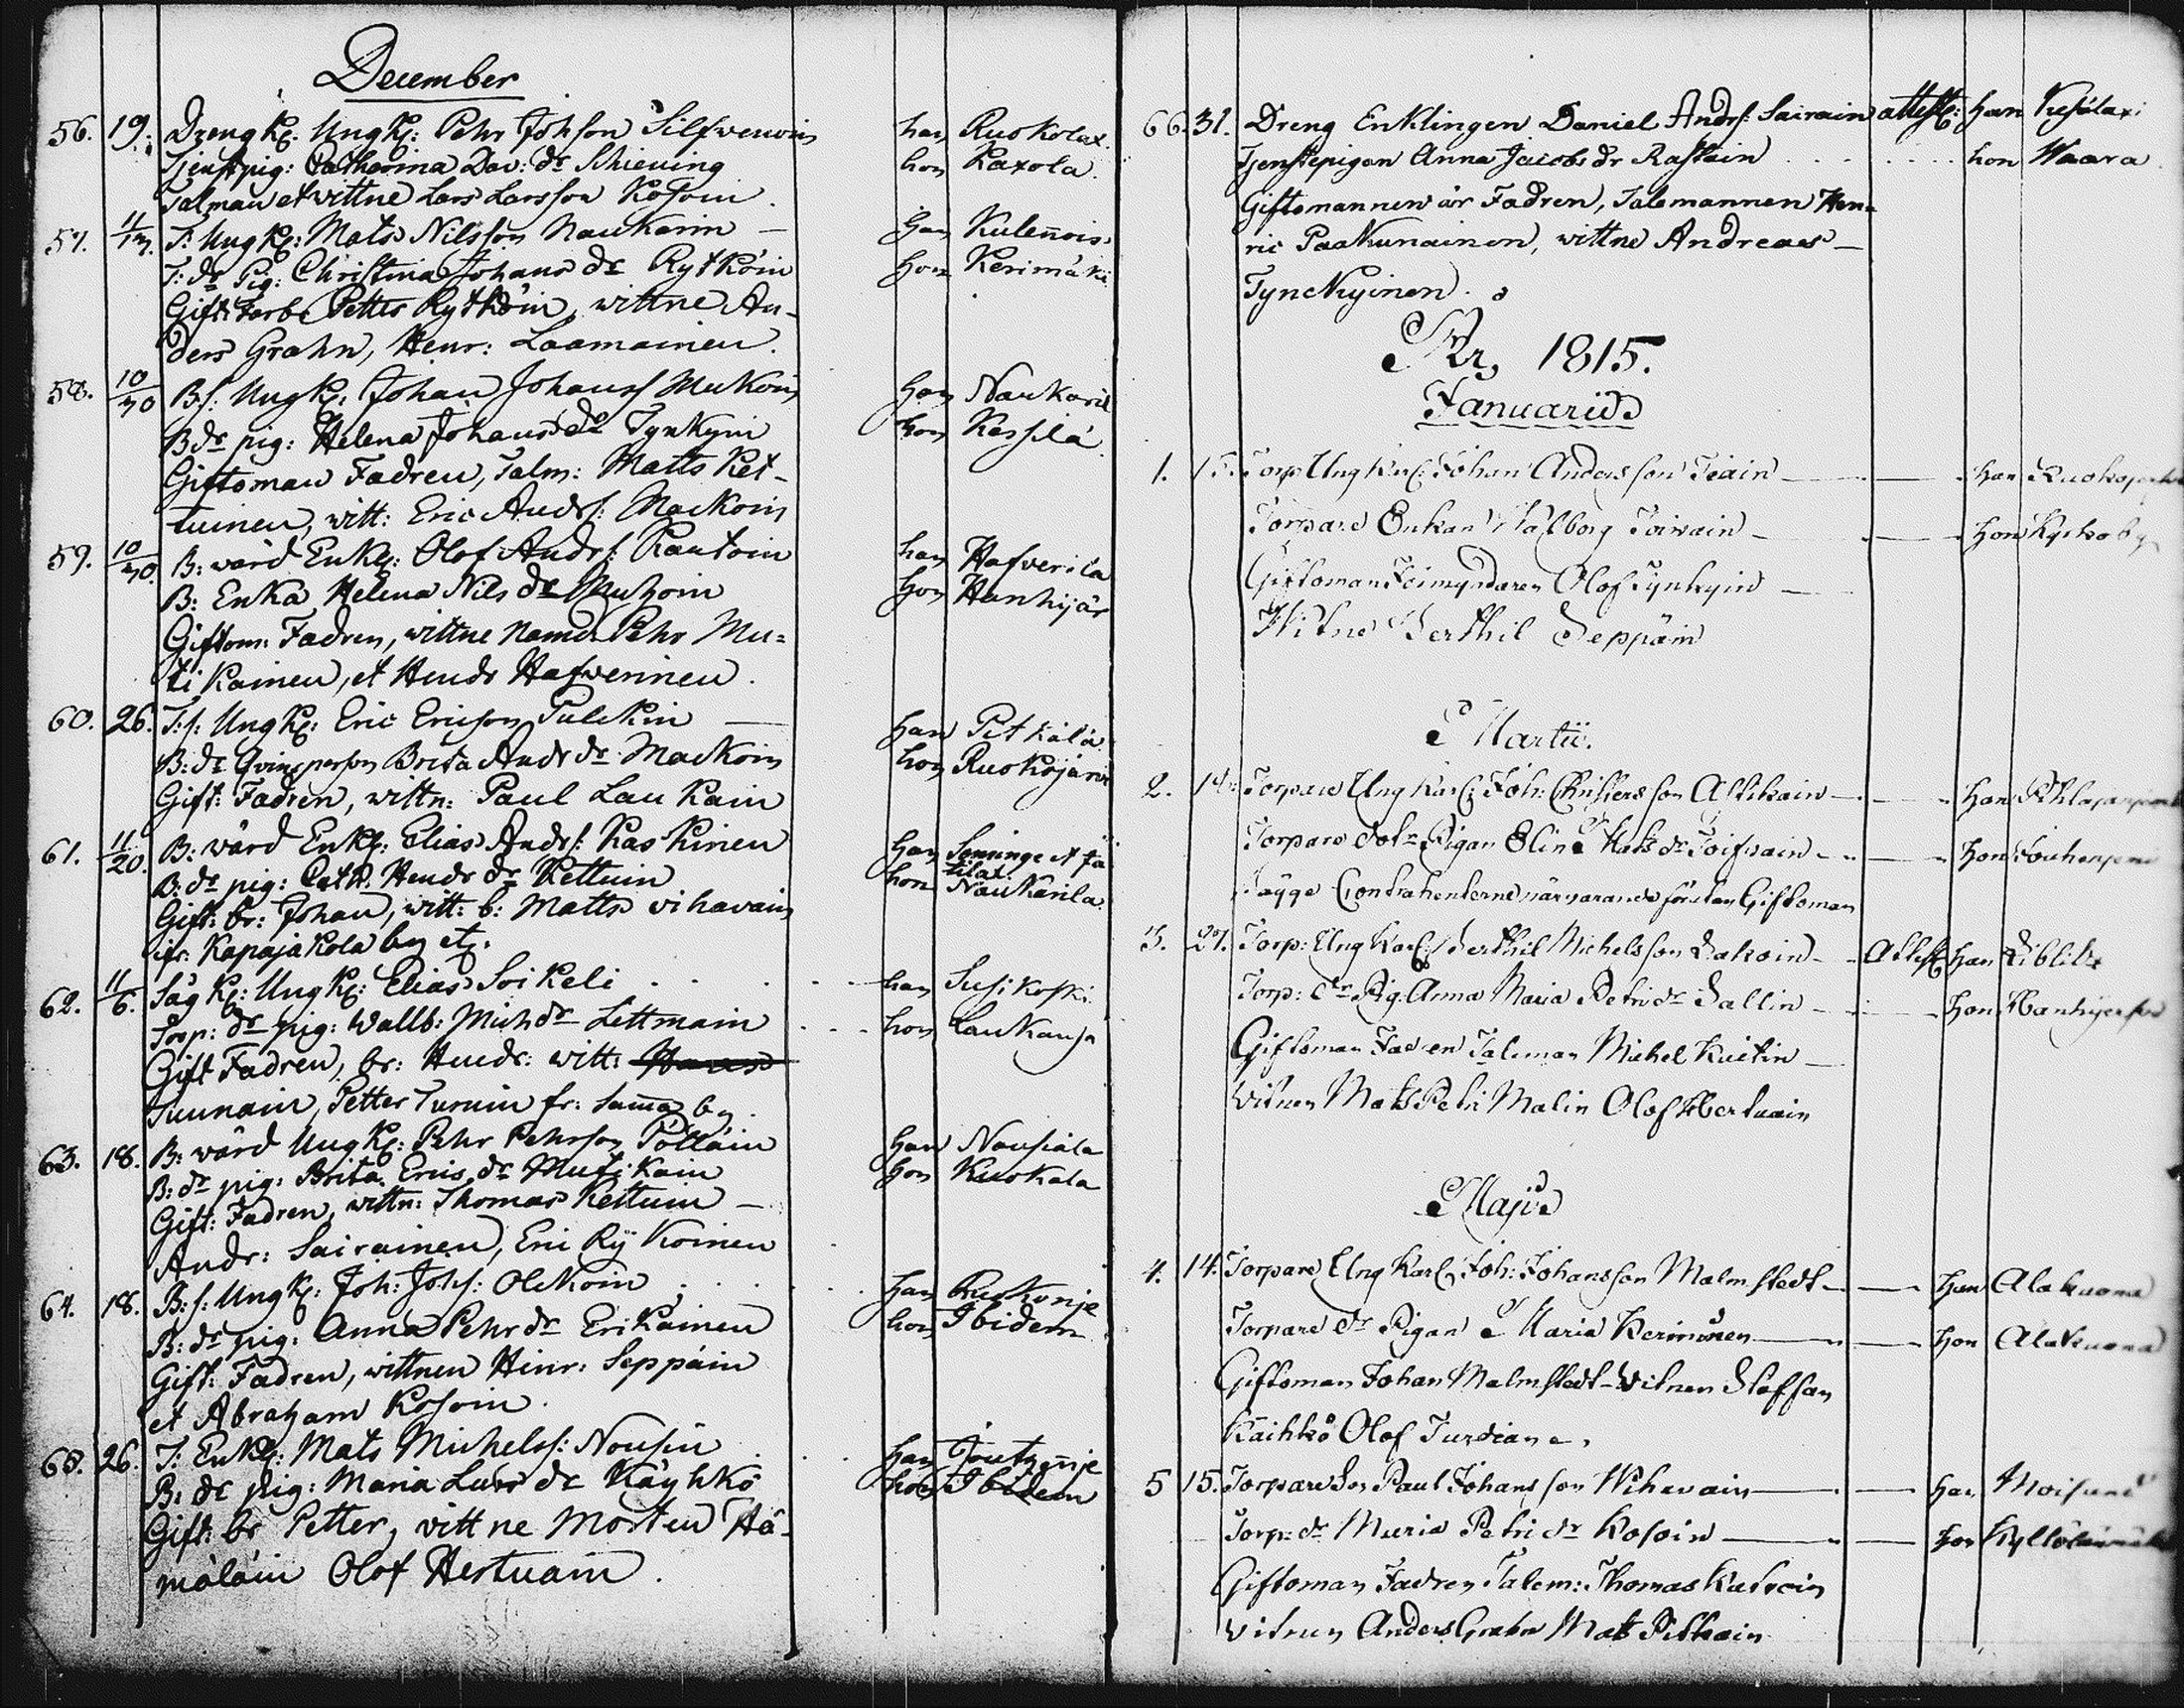 December
56. 19. Drengk: Ungk: Pehr Johson Silfwenoin han Ruokolax.
Tjenstpig: Catharina Dav: dr Schieving hon Kaxola.
Talman et wittne Lars Larsson Kosoin.
57. 11/13. T: Ungk: Mats Nilsson Naukarin — han Kulennois.
T: dr Pig: Christina Johans dr Rytköin hon Kerimäki
Gift: Farbr Petter Rytköin, wittne An-
ders Grahn, Henr: Laamainen.
58. 10/30 Bs: Ungk: Johan Johanss Mukoin han Naukaril
B dr pig: Helena Johans dr Tynkyin hon Kessilä
Giftoman Fadren, Talm: Matts Ket-
tuinen, witt: Eric Andrs: Mackoin
59. 10/30. B: wärd Enkl: Olof Andrs: Rautoin han Hafverila
B: Enka Helena Nils dr Muhoin hon Hanhijär
Giftom: Fadren, wittne Nämd. Pehr Mu=
ti Kainen, et Hendr Hafwerinen.
60. 26. T: s: Ungk: Eric Ericson Pulckin — han Pitkälä
B: dr Qvinsperson Brita Andr dr Mackoin hon Ruokojärvi
Gift: Fadren, wittn: Paul Lau Kain
61. 11/20. B: wärd Enkl: Elias Andrs: Kaskinen han Senninge et Jä
tilax.
B: dr pig: Cath. Hendr dr Kettuin hon Naukarila.
Gift: br: Johan, witt: b: Matts Vihavain
ifr. Kapajakola by etc.
62. 11/6. Såg k: Ungk: Elias Soikeli han Susikoski.
Torp: dr pig: Wallb: Mich dr Lettmain hon Laukansa
Gift Fadren, br: Hendr: witt:
Tuunain, Petter Turuin fr: samma by.
63. 18. B: wärd Ungk: Pehr Pehrson Pölläin han Nousiala
B: dr pig: Brita Erics dr Mutikain hon Kuokala
Gift: Fadren, wittn: Thomas Kettuin —
Andr: Sairainen, Eric Ryÿkoinen
64. 18. B: s: Ungk: Joh: Johs: Olckoin han Ruokonje
B: dr pig: Anna Pehr dr Erikäinen hon Ibidem
Gift: Fadren, wittnen Hinr: Seppäin
et Abraham Kosoin.
65. 26. T: Enkl: Mats Michelss: Nousiu han Joutzenje
B: dr pig: Maria Lars dr Käyhkö hon Ibidem
Gift: br Petter, vittne Morten Hä-
mäläin Olof Hertuain.
66. 31. Dreng Enklingen Daniel Andrs: Sairain attest: han Kesälaxi
Tjenstepigan Anna Jacobs dr Rastain hon Waara.
Giftomannen är Fadren, Talemannen Hen-
ric Paakkunainen, wittne Andreas —
Tynckyinen.
År, 1815.
Januarius
1. 15. Torp Ung Karl: Johan Andersson Teain — han Ruokojerfvi
Torpare Enkan Walborg Toivain — hon Kyrkoby
Giftoman Förmyndaren Olof Tynkyin —
Witne Berthil Seppäin
Martii.
2. 19: Torpare Ung Karl: Joh: Christersson Attikain — han
Torpare dotr Pigan Elin Mats dr Toifvain — hon
Bägge Contrahenterne närvarande förutan Giftoman
3. 27. Torp: Ung Karl: Berthil Michelsson Lakoin — Attest han
Torp: dr Pig: Anna Maria Petri dr Sallin — hon Hanhijerfvi
Giftoman Fadren Taleman Michel Kuitin —
Witnen Mats Petri Malin Olof Hertuain
Majus
4. 14. Torpare Ung Karl: Joh: Johansson Malmstedt — han Alakuona
Torpare dr Pigan Maria Kerinönen — hon Alakuona
Giftoman Johan Malmstedt — Witnen Staffan
Kaihkö Olof Turdiane.
5 15. Torpare Son Paul Johansson Wihavain — han
Torp: dr Maria Petri dr Kosoin — hon
Giftoman Fadren Talem: Thomas Kutvoin
Witnen Anders Grahn Mats Pitkain